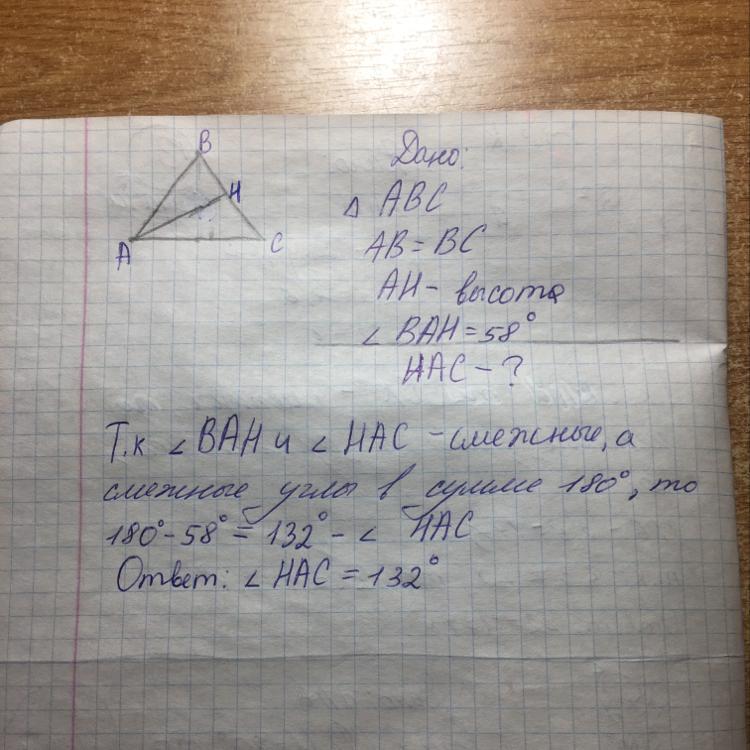 B
H
A
C
Дано:
△ ABC
AB = BC
AH - высота
∠ BAH = 58°
HAC - ?
Т.к ∠ BAH и ∠ HAC - смежные, а
смежные углы в сумме 180°, то
180° - 58° = 132° - ∠ HAC
Ответ: ∠ HAC = 132°